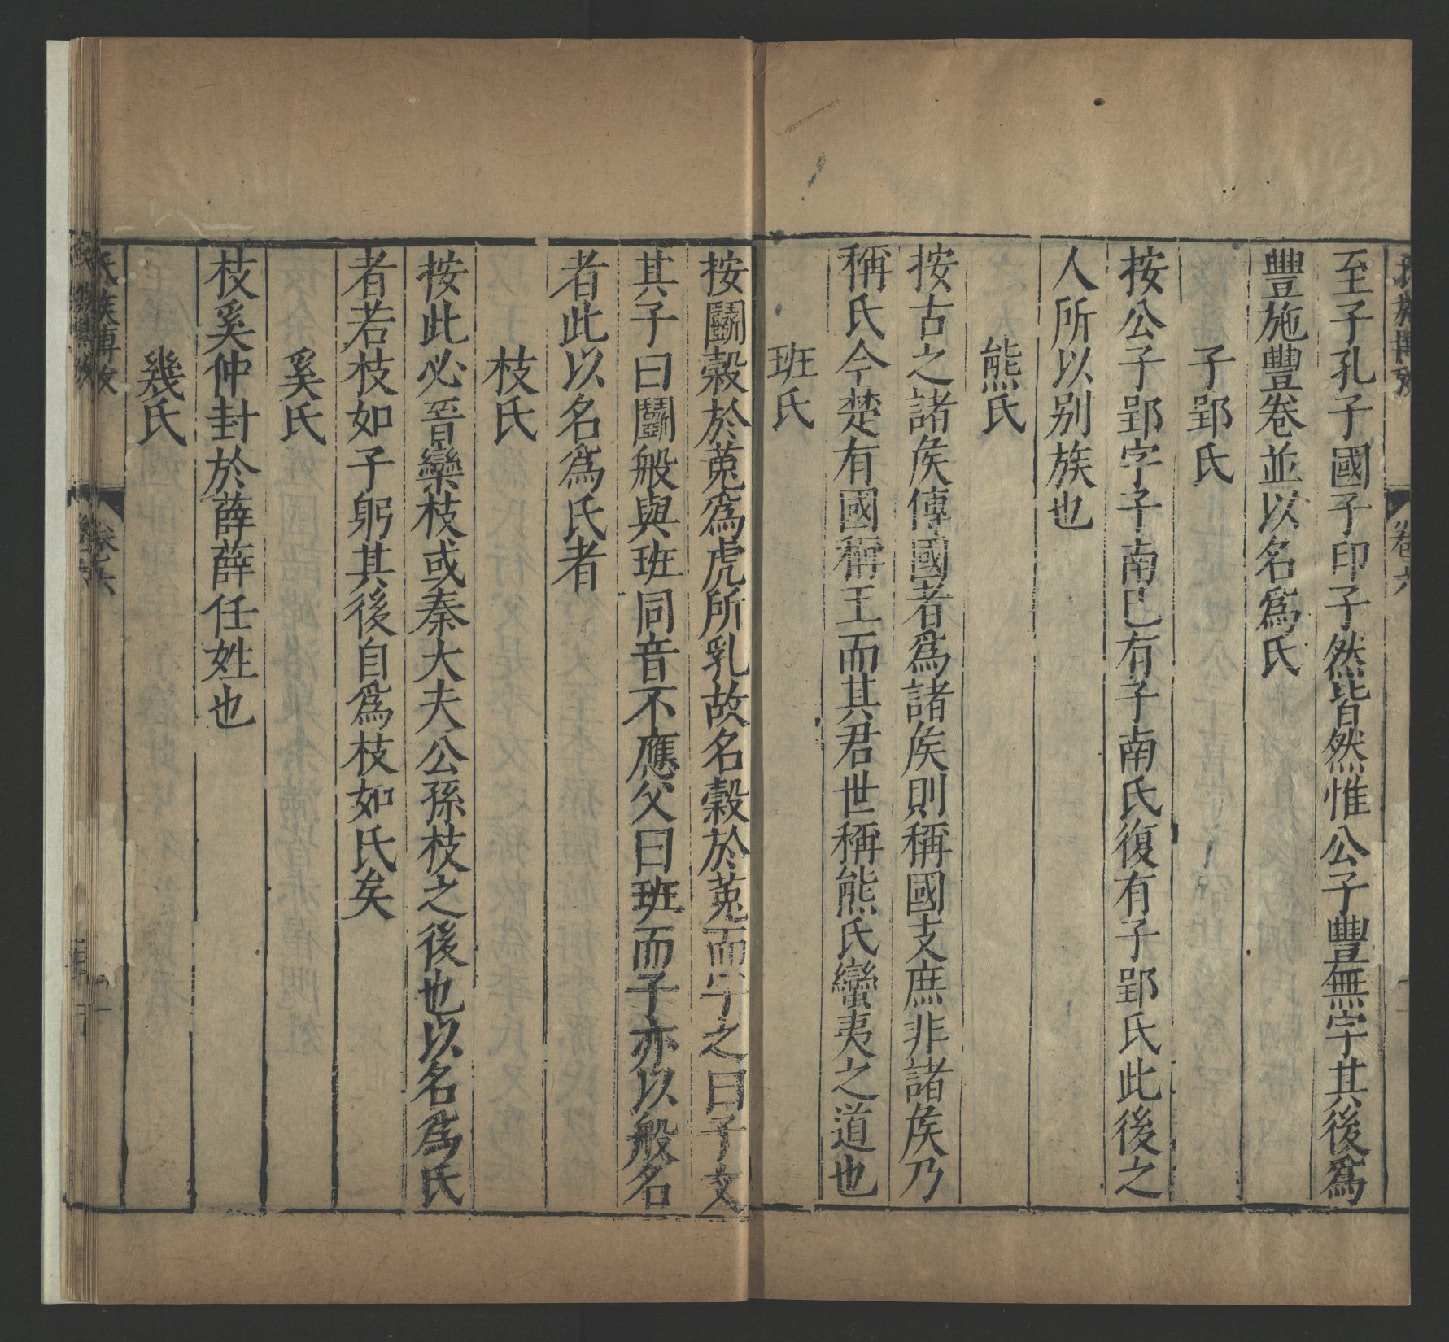 氏族博攷
卷六
至子孔子國子印子然皆然惟公子豐無字其後爲
豐施豐卷並以名爲氏
子郢氏
按公子郢字子南已有子南氏復有子郢氏此後之
人所以别族也
熊氏
按古之諸矦傳國者爲諸矦則稱國支庶非諸矦乃
稱氏今楚有國稱王而其君世稱熊氏蠻夷之道也
班氏
按鬬榖於菟爲虎所乳故名穀於菟而字之曰子文
其子曰鬬般與班同音不應父曰班而子亦以般名
者此以名爲氏者
枝氏
按此必晉欒枝或秦大夫公孫枝之後也以名爲氏
者若枝如子躬其後自爲枝如氏矣
奚氏
枝奚仲封於薛薛任姓也
幾氏
氏族博攷
卷之六